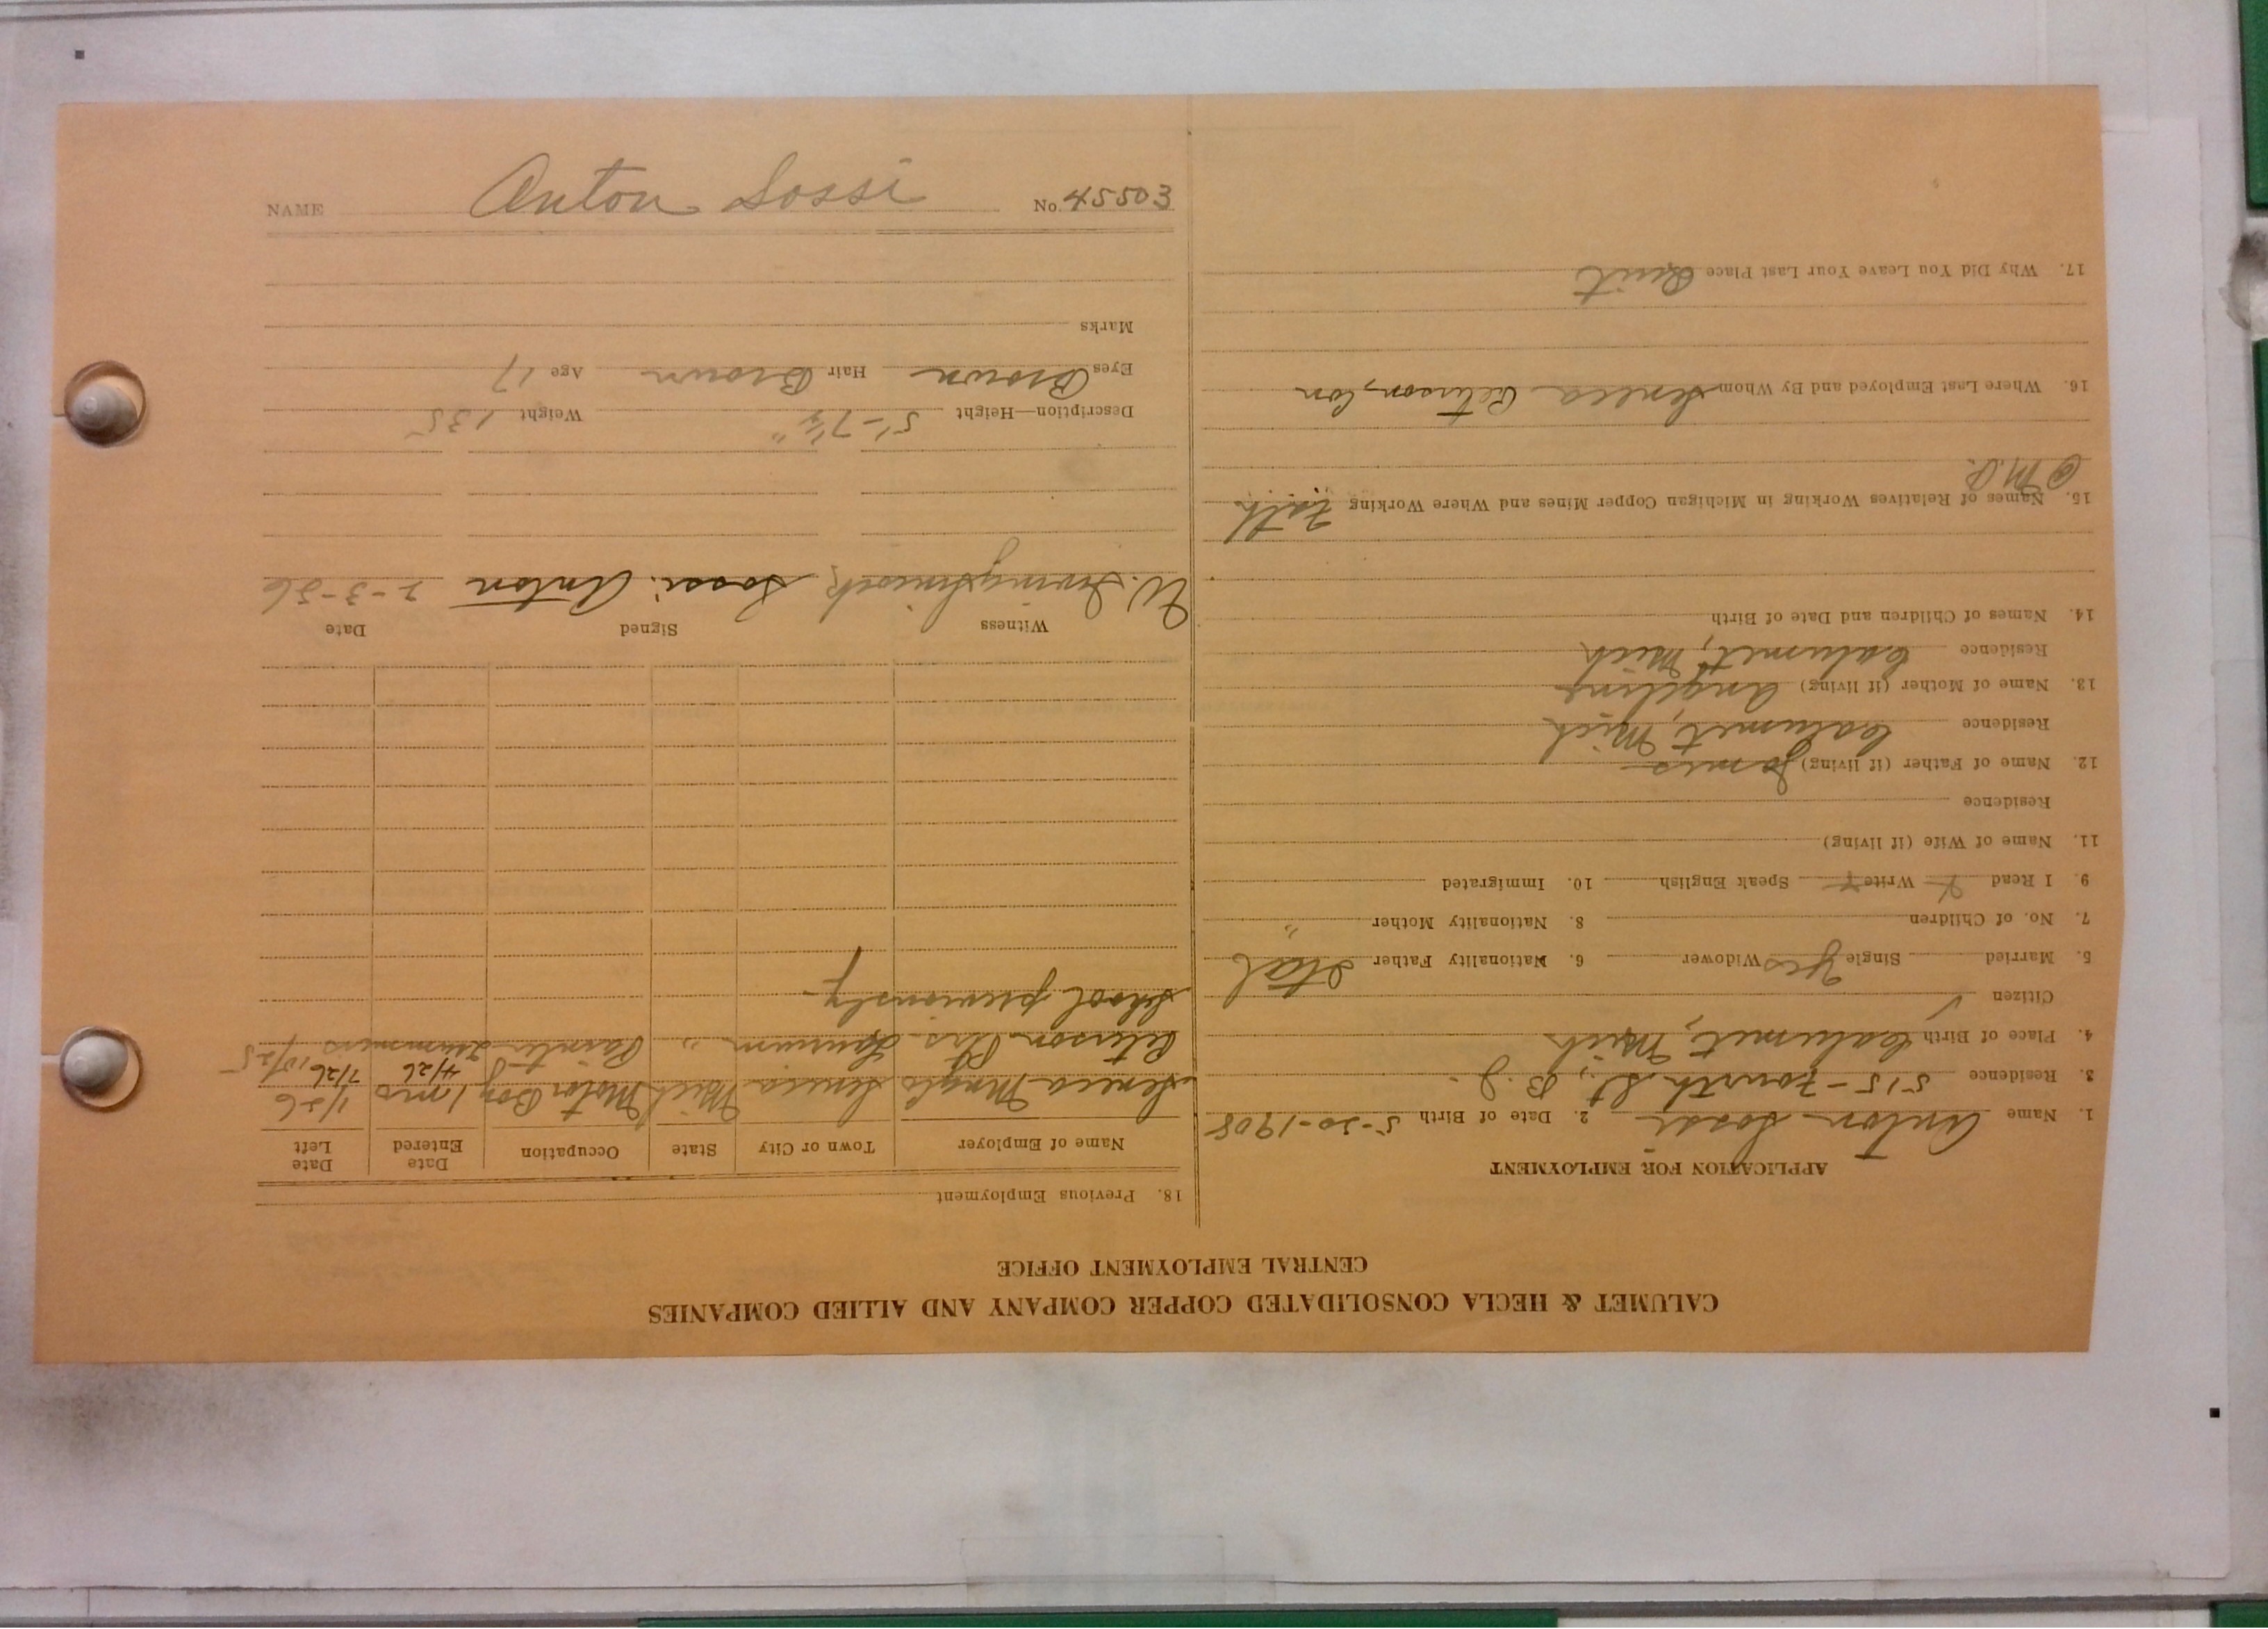 CALUMET & HECLA CONSOLIDATED COPPER COMPANY AND ALLIED COMPANIES
CENTRAL EMPLOYMENT OFFICE
APPLICATION FOR EMPLOYMENT
1. Name Anton Sossi 2. Date of Birth 5-30-1908
3. Residence 515-Fourth St., B. J.
4. Place of Birth Calumet, Mich
Citizen ✓
5. Married Single Yes Widower 6. Nationality Father Ital
7. No. of Children 8. Nationality Mother "
9. I Read Y Write Y Speak English 10. Immigrated
11. Name of Wife (if living)
Residence
12. Name of Father (if living) James
Residence Calumet, Mich
13. Name of Mother (if living) Angeline
Residence Calumet, Mich
14. Names of Children and Date of Birth
15. Names of Relatives Working in Michigan Copper Mines and Where Working Fath
@ M.
16. Where Last Employed and By Whom Seneca Peterson, Con
17. Why Did You Leave Your Last Place Quit
18. Previous Employment
Name of Employer Town or City State Occupation Date Entered Date Left
Seneca Seneca Mich Motor Boy 1 mo 1/26
4/26 7/26 10/25
Peterson Laurium " Painter Summers
School previously
Witness Signed Date
W. Sossi: Anton 2-3-26
Description—Height 5'-7½" Weight 135
Eyes Brown Hair Brown Age 17
Marks
NAME Anton Sossi No. 45503